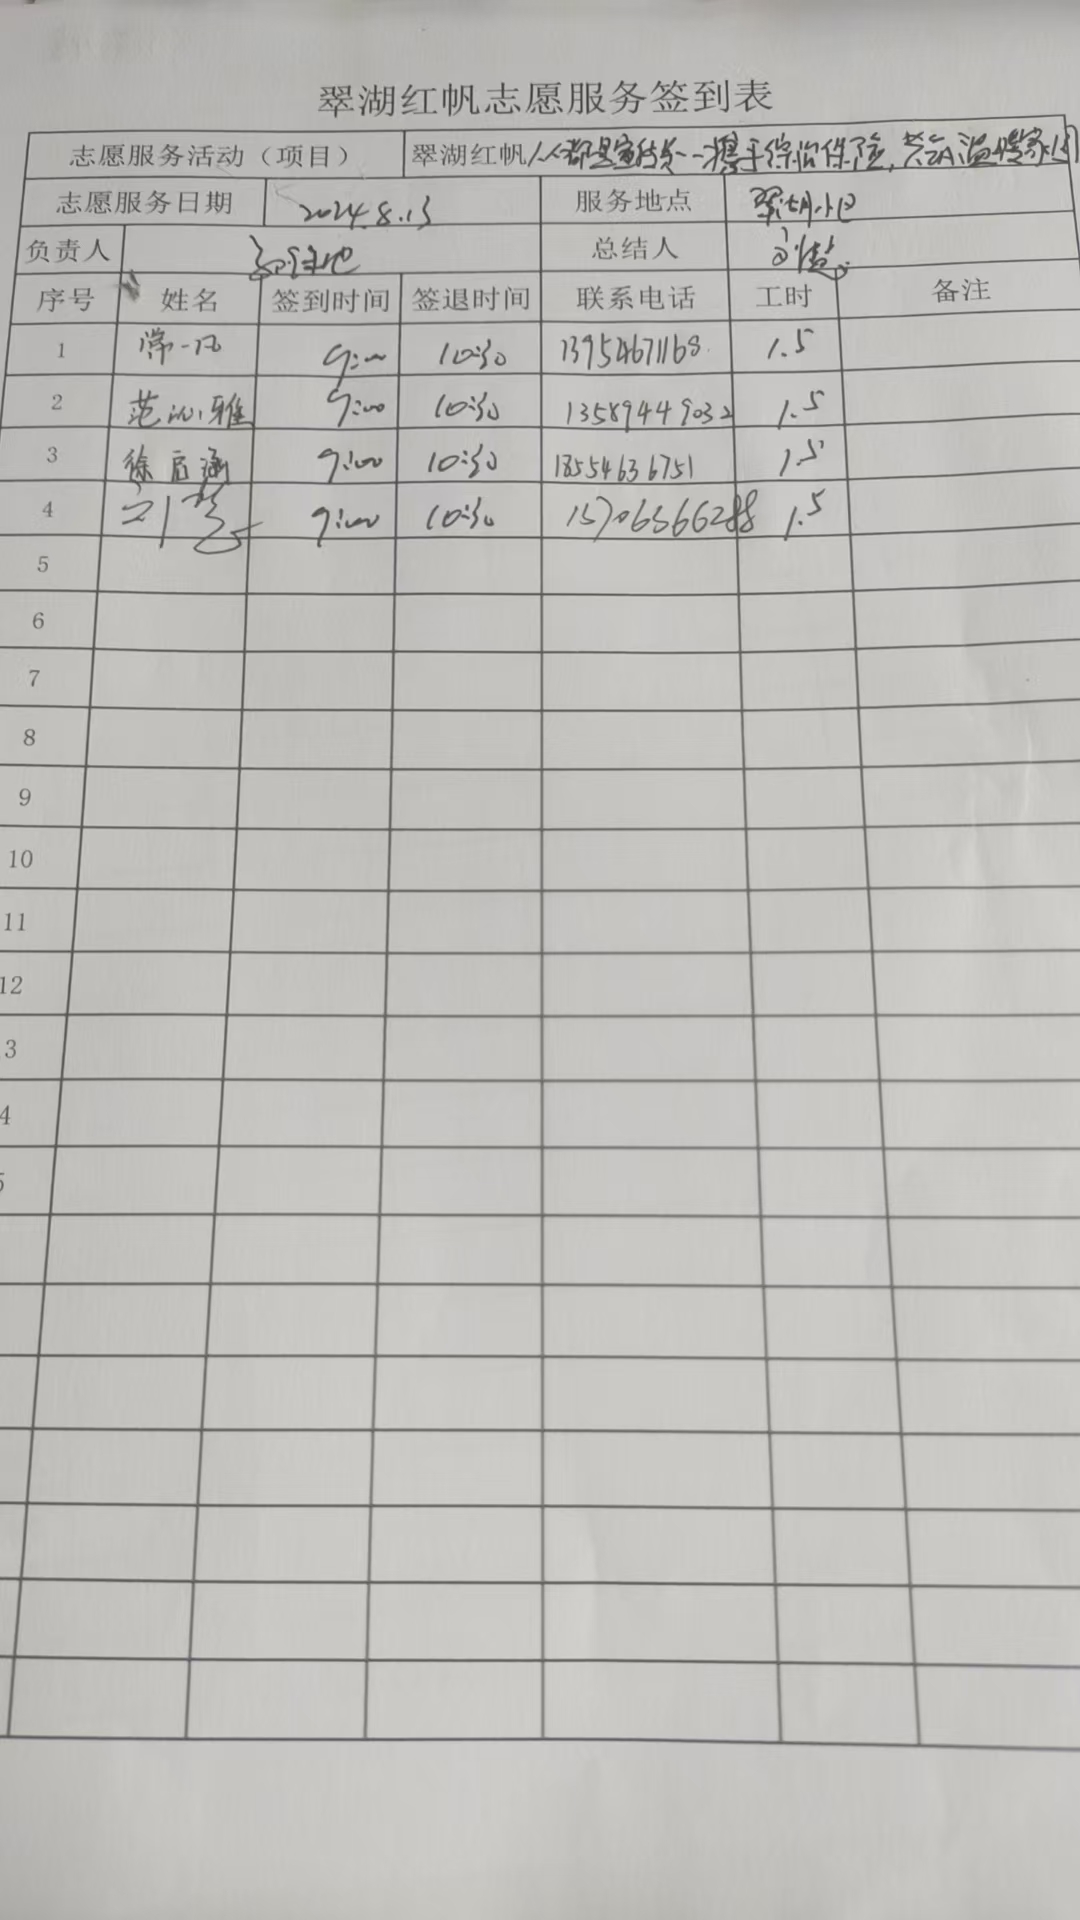 翠湖红帆志愿服务签到表
志愿服务活动（项目） 翠湖红帆人人都是宣传员--携手综治保险,共筑温馨家园
志愿服务日期 2024.8.13 服务地点 翠湖小区
负责人 总结人 刘慧
序号 姓名 签到时间 签退时间 联系电话 工时 备注
1 常一凡 9:00 10:30 13954671168 1.5
2 范沁雅 9:00 10:30 13589449032 1.5
3 徐启涵 9:00 10:30 18554636751 1.5
4 刘慧 9:00 10:30 15706566288 1.5
5
6
7
8
9
10
11
12
3
4
5